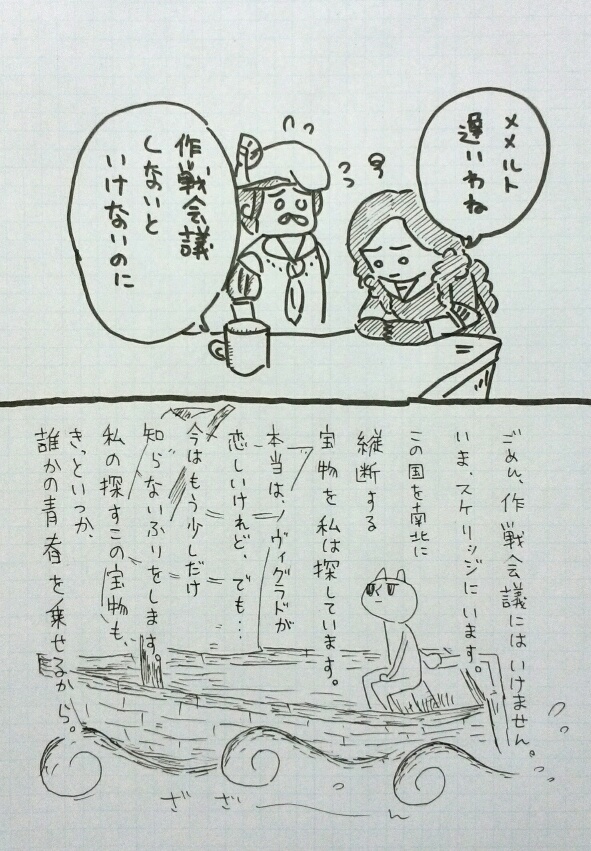 メメルト
遅いわね
作戦会議
しないと
いけないのに
ごめん、作戦会議にはいけません。
いま、スケリッジにいます。
この国を南北に
縦断する
宝物を私は探しています。
本当は、ノヴィグラドが
恋しいけれど、でも…
今はもう少しだけ
知らないふりをします。
私の探すこの宝物も、
きっといつか、
誰かの青春を乗せるから。
ざざーーん